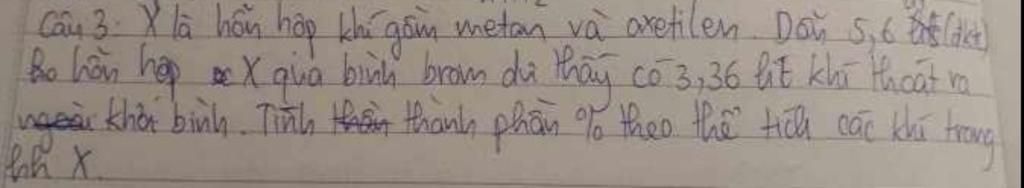 Câu 3: X là hỗn hợp khí gồm metan và axetilen. Dẫn 5,6 lít (đkt)
hỗn hợp X qua bình brom dư thấy có 3,36 lít khí thoát ra
khỏi bình. Tính thành phần % theo thể tích các khí trong
hh X.